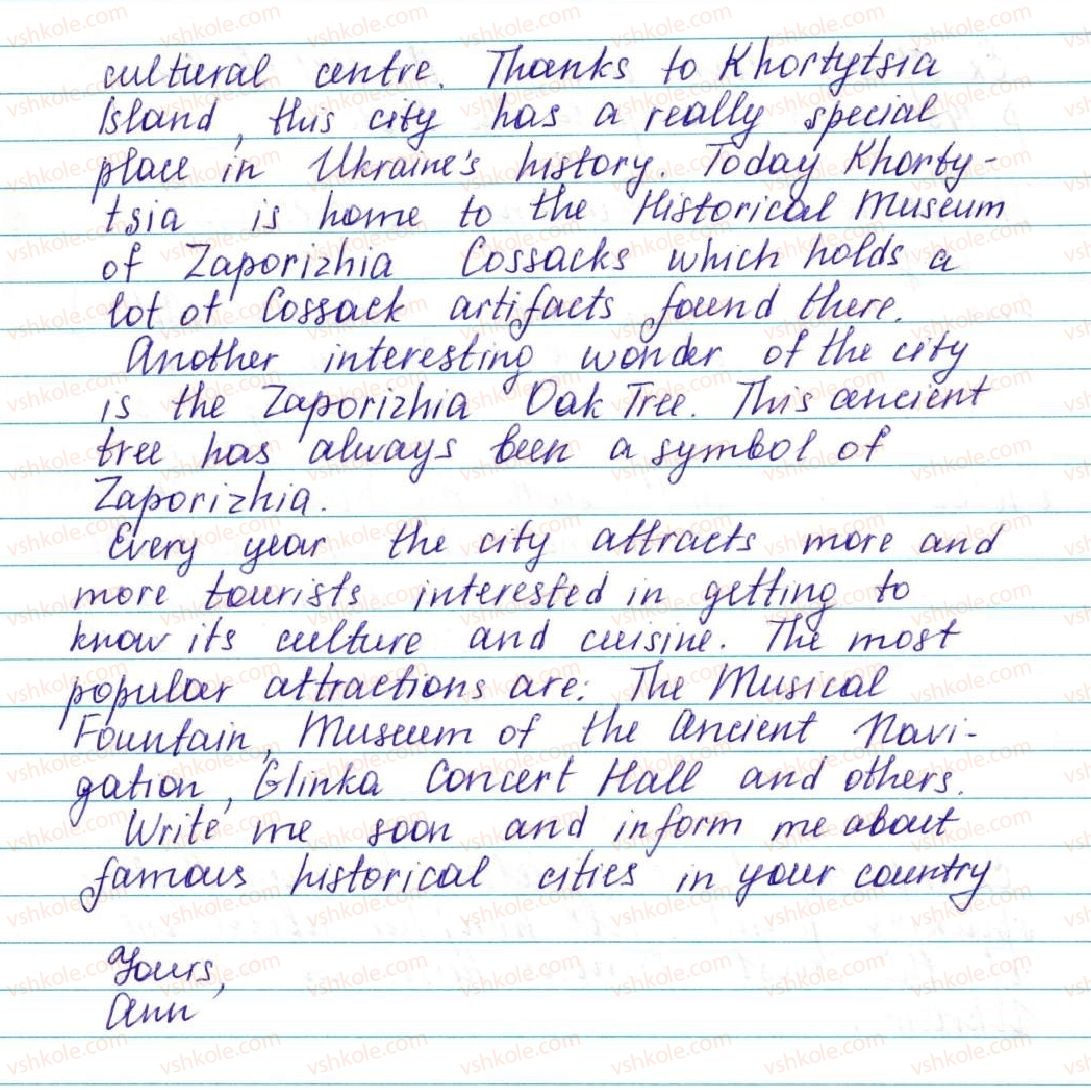 cultural centre. Thanks to Khortytsia
Island, this city has a really special
place in Ukraine's history. Today Khorty-
tsia is home to the Historical Museum
of Zaporizhia Cossacks which holds a
lot of Cossack artifacts found there.
Another interesting wonder of the city
is the Zaporizhia Oak Tree. This ancient
tree has always been a symbol of
Zaporizhia.
Every year the city attracts more and
more tourists interested in getting to
know its culture and cuisine. The most
popular attractions are: The Musical
Fountain, Museum of the Ancient Navi-
gation, Glinka Concert Hall and others.
Write me soon and inform me about
famous historical cities in your country
Yours,
Ann